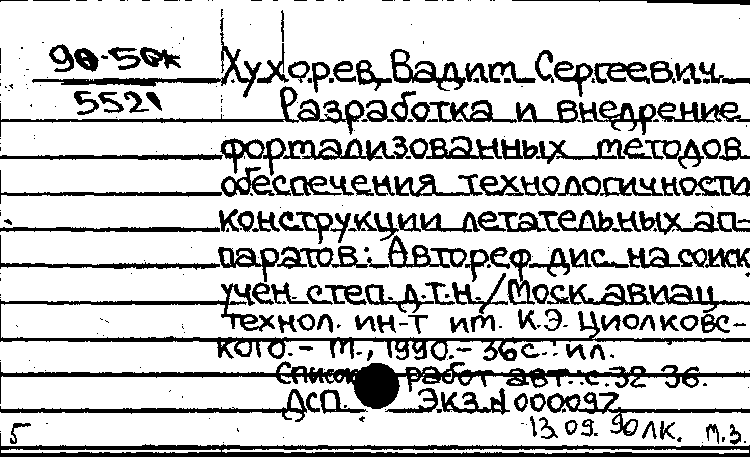 90-50к Хухорев, Вадим Сергеевич
5521 Разработка и внедрение
формализованных методов
обеспечения технологичности
конструкции летательных ап-
паратов: Автореф. дис. на соиск.
учен. степ. д.т.н./Моск. авиац.
технол. ин-т им. К.Э. Циолковс-
кого. – М., 1990. – 36 с.: ил.
Список работ авт.: с. 32-36.
ДСП. Экз. N 000097
5 13.09.90 ЛК. М.З.